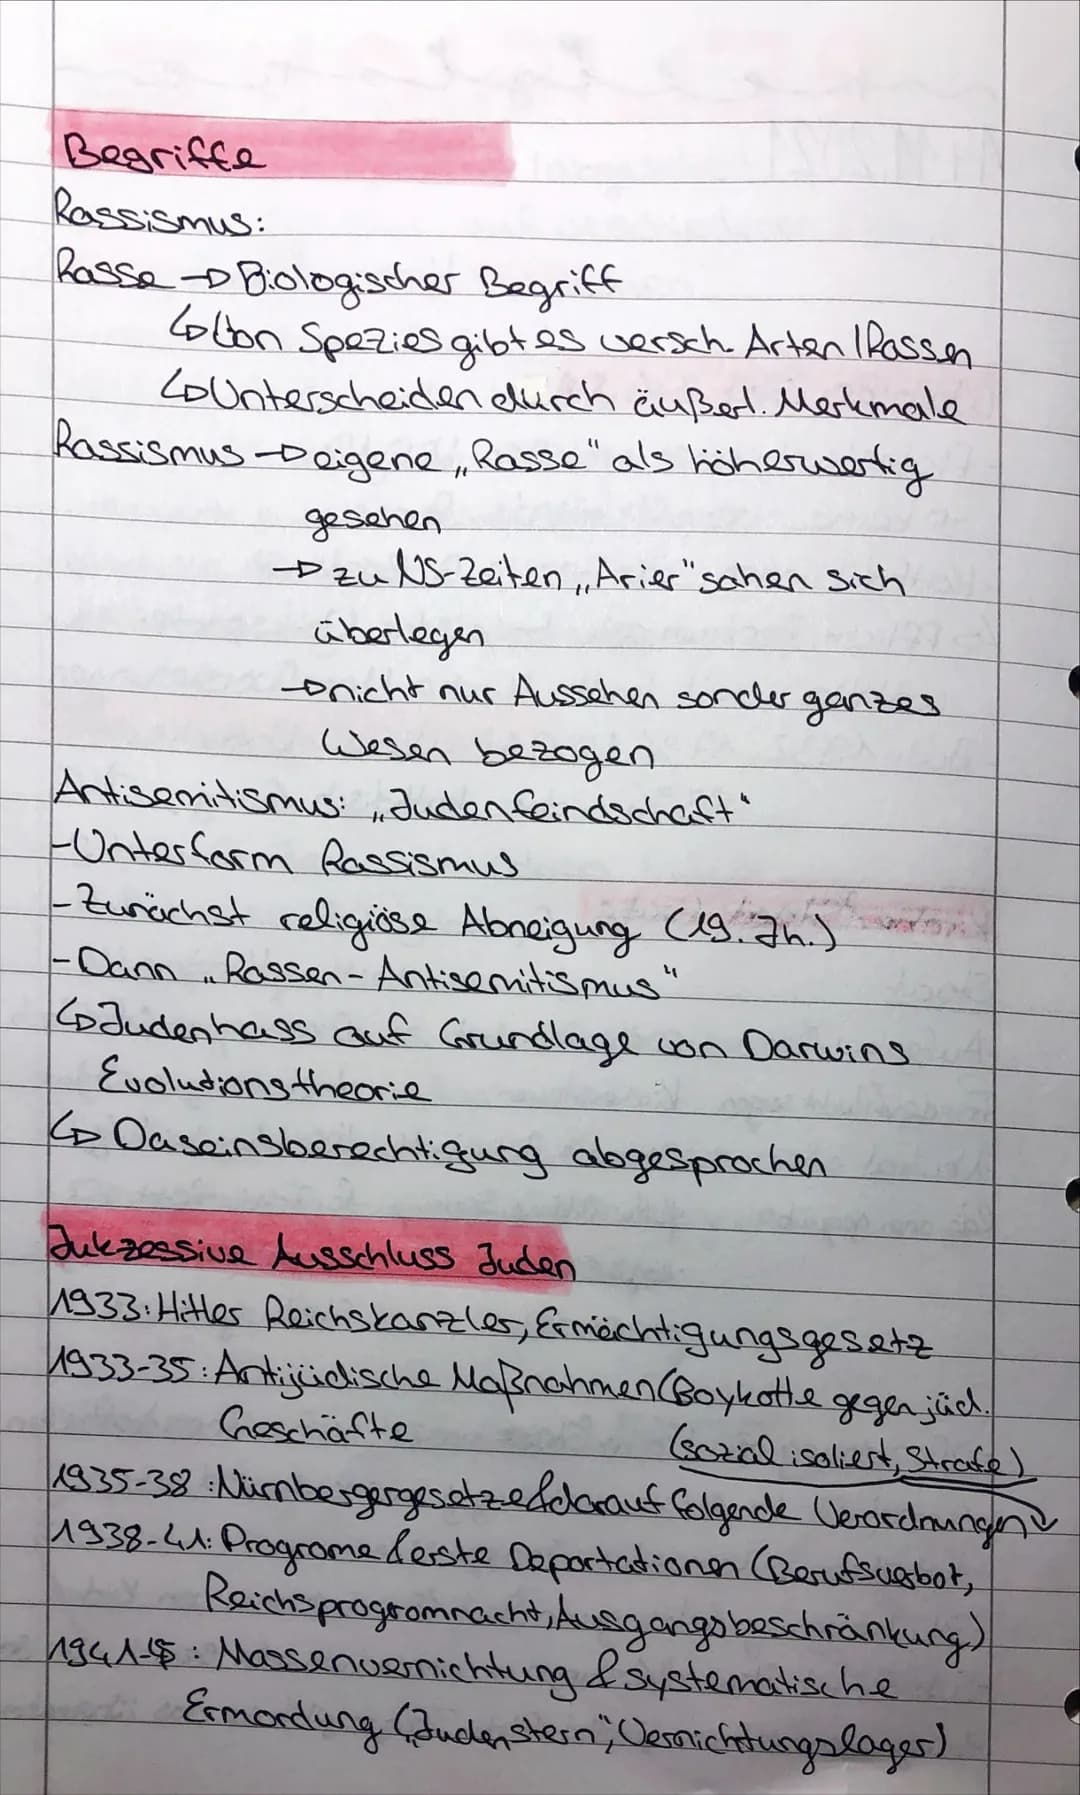 Begriffe
Rassismus:
Rasse → Biologischer Begriff
↳ Von Spezies gibt es versch. Arten / Rassen
↳ Unterscheiden durch äußerl. Merkmale
Rassismus → eigene „Rasse" als höherwertig
gesehen
→ zu NS-Zeiten „Arier" sahen sich
überlegen
→ nicht nur Aussehen sonder ganzes
Wesen bezogen
Antisemitismus: „Judenfeindschaft"
- Unterform Rassismus
- Zunächst religiöse Abneigung (19. Jh.)
- Dann „Rassen-Antisemitismus"
↳ Judenhass auf Grundlage von Darwins
Evolutionstheorie
↳ Daseinsberechtigung abgesprochen
Sukzessive Ausschluss Juden
1933: Hitler Reichskanzler, Ermächtigungsgesetz
1933-35: Antijüdische Maßnahmen (Boykotte gegen jüd.
Geschäfte
(sozial isoliert, Strafe)
1935-38: Nürnbergergesetze & darauf folgende Verordnungen
1938-41: Programe & erste Deportationen (Berufsverbot,
Reichsprogromnacht, Ausgangsbeschränkung)
1941-45: Massenvernichtung & systematische
Ermordung („Judenstern", Vernichtungslager)